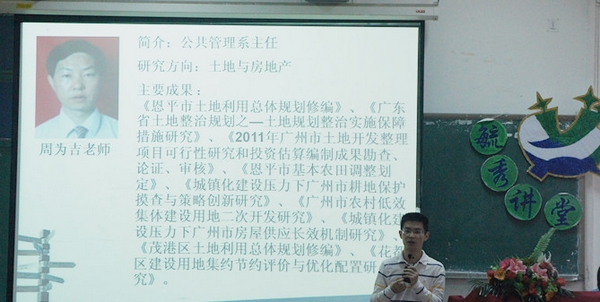 简介：公共管理系主任
研究方向：土地与房地产
主要成果：
《恩平市土地利用总体规划修编》、《广东
省土地整治规划之—土地规划整治实施保障
措施研究》、《2011年广州市土地开发整理
项目可行性研究和投资估算编制成果勘查、
论证、审核》、《恩平市基本农田调整划
定》、《城镇化建设压力下广州市耕地保护
摸查与策略创新研究》、《广州市农村低效
集体建设用地二次开发研究》、《城镇化建
设压力下广州市房屋供应长效机制研究》、
《茂港区土地利用总体规划修编》、《花
区建设用地集约节约评价与优化配置研
究》。
周为吉老师
毓秀讲堂